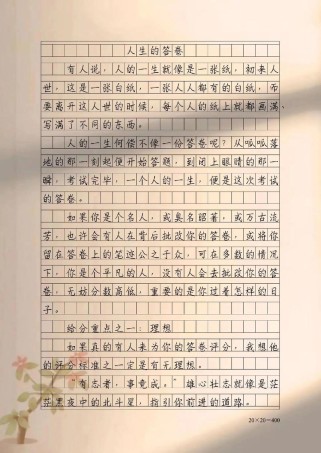 人生的答卷
有人说，人的一生就像是一张纸，初来人
世，这是一张白纸，一张人人都有的白纸，而
要离开这人世的时候，每个人的纸上就都画满、
写满了不同的东西。
人的一生何偿不像一份答卷呢？从呱呱落
地的那一刻起便开始答题，到闭上眼睛的那一
瞬，考试完毕，一个人的一生，便是这次考试
的答卷。
如果你是个名人，或臭名昭著，或万古流
芳，也许会有人在背后批改你的答卷，或将你
留在答卷上的笔迹公之于众，可在多数的情况
下，你是个平凡的人，没有人会去批改你的答
卷，无妨分数高低，重要的是你过着怎样的日
子。
给分重点之一：理想
如果真的有人来为你的答卷评分，我想他
的评分标准之一定是有无理想。
“有志者，事竟成。”雄心壮志就像是茫
茫黑夜中的北斗星，指引你前进的道路。
20×20=400